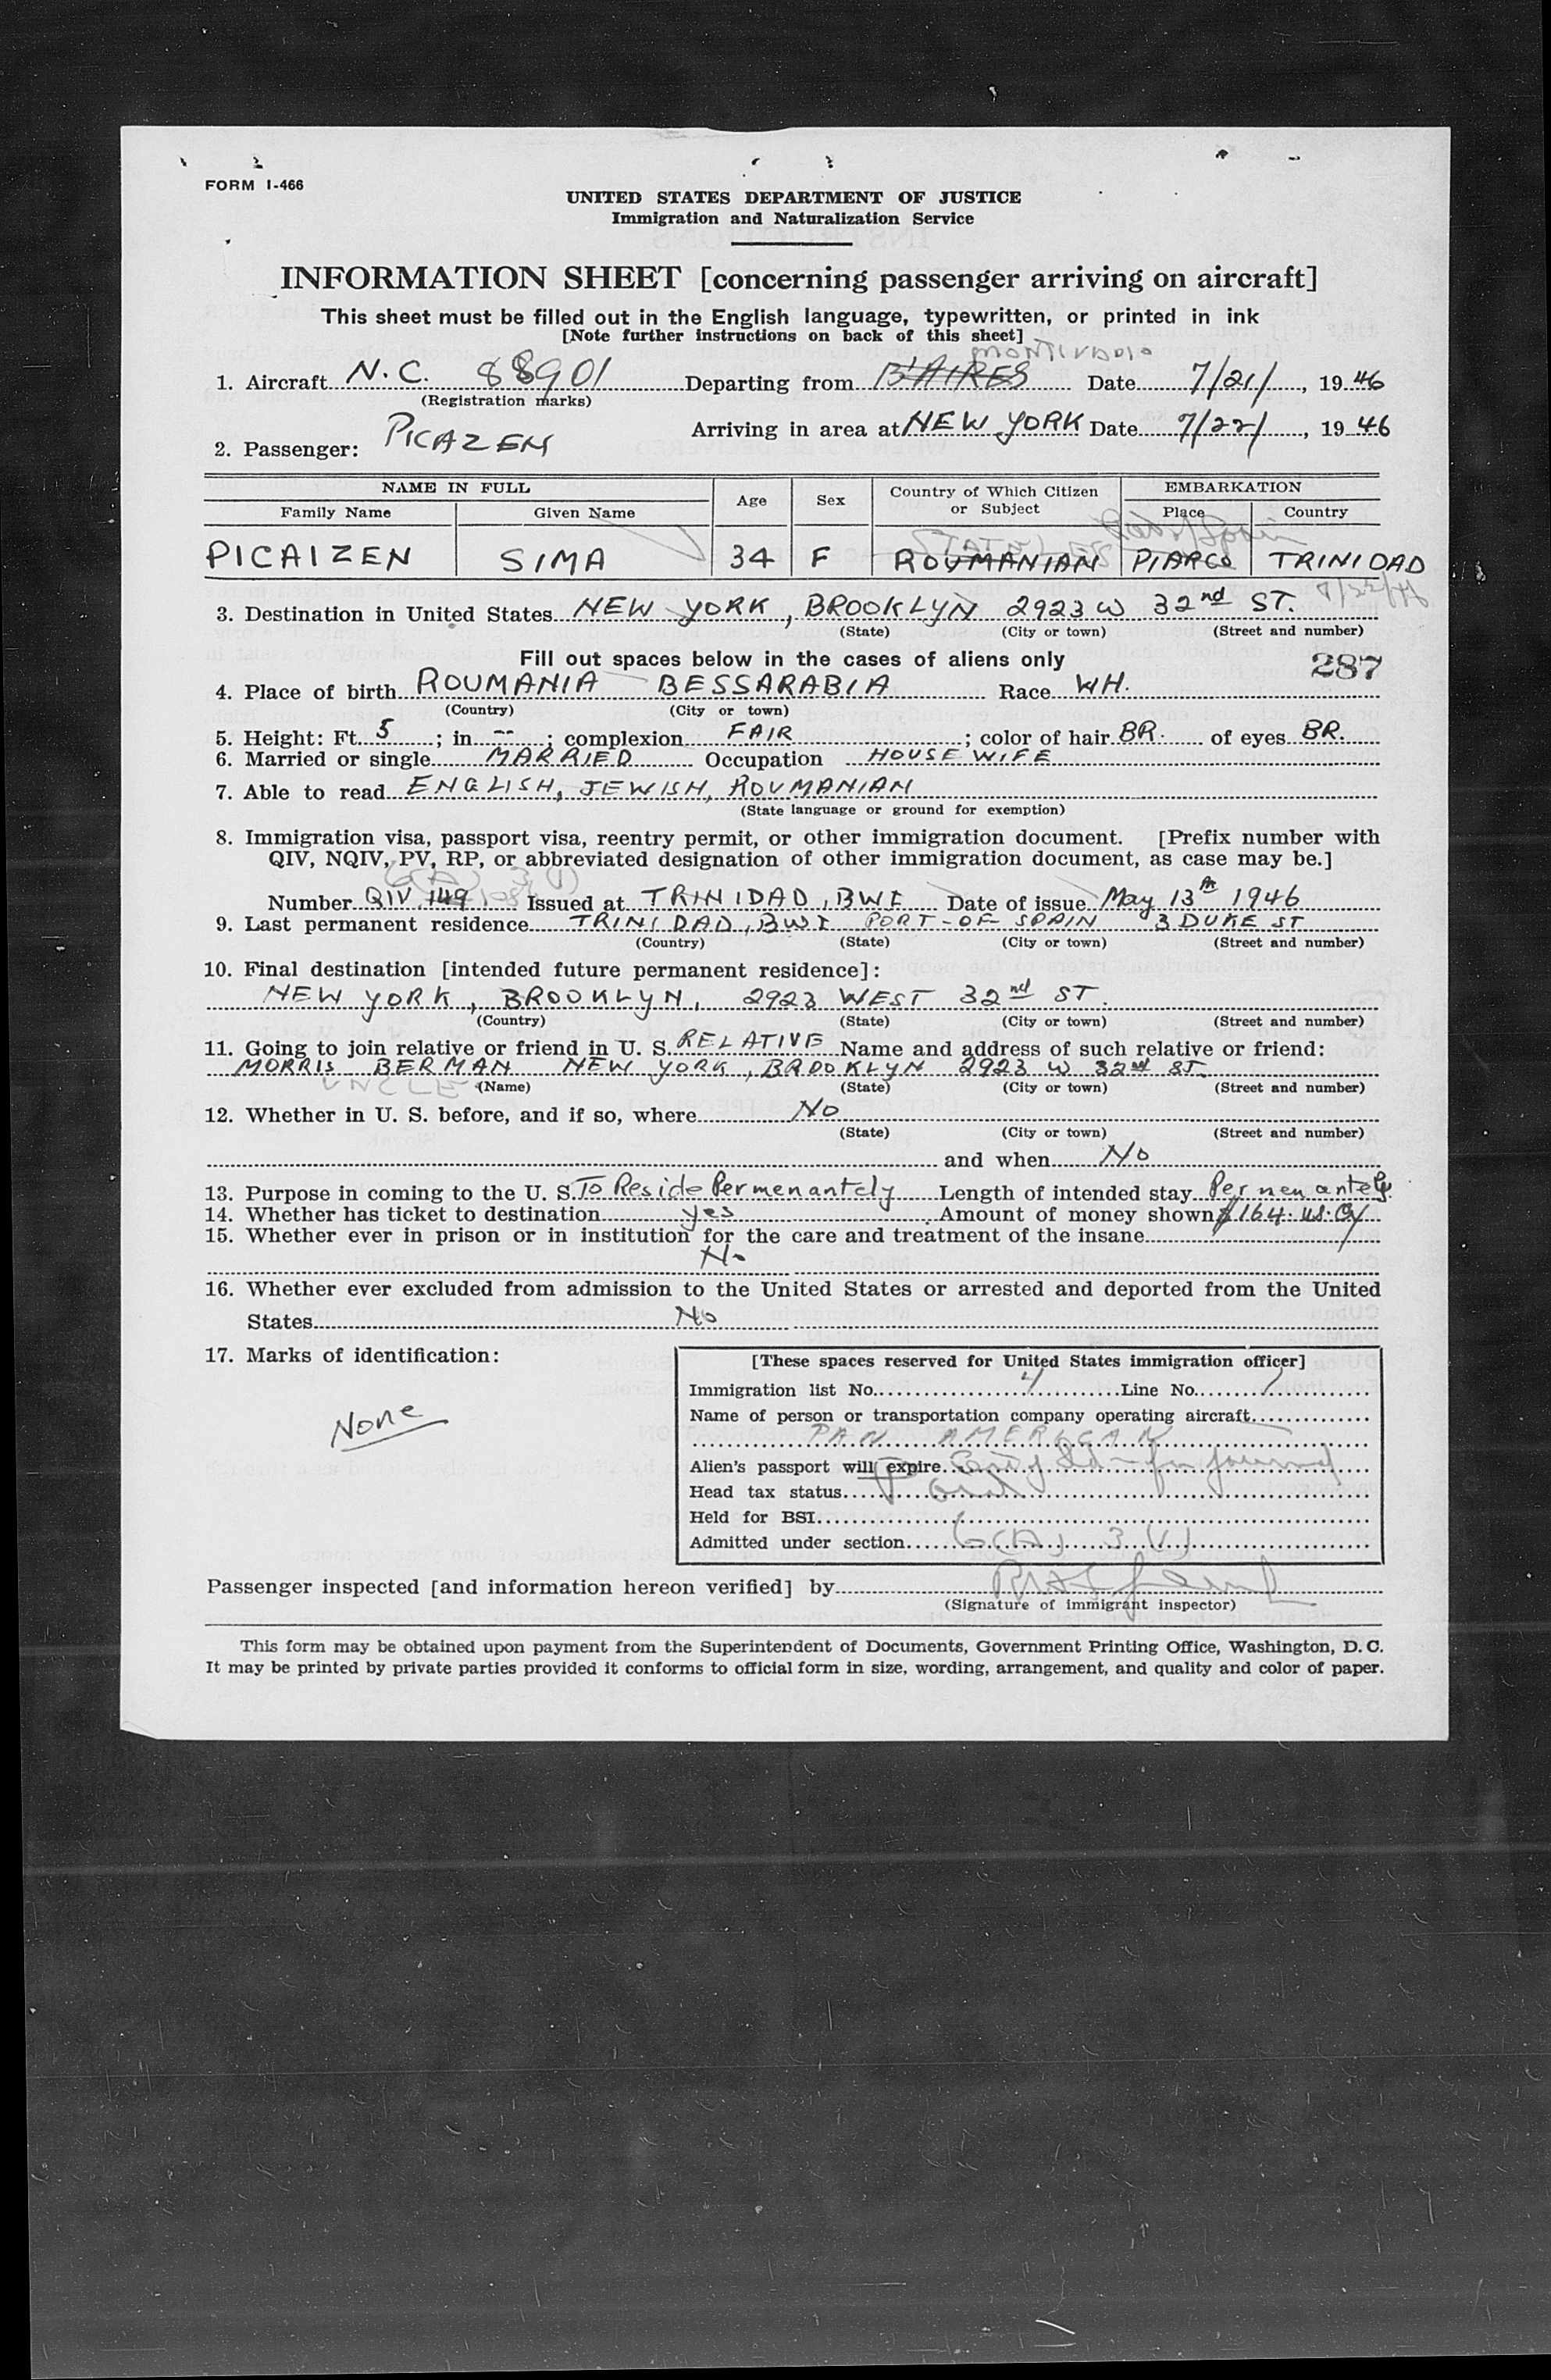 FORM I-466
UNITED STATES DEPARTMENT OF JUSTICE
Immigration and Naturalization Service
INFORMATION SHEET [concerning passenger arriving on aircraft]
This sheet must be filled out in the English language, typewritten, or printed in ink
[Note further instructions on back of this sheet]
MONTIVADIO
1. Aircraft N.C. 88901 Departing from B'AIRES Date 7/21/, 1946
(Registration marks)
Arriving in area at NEW YORK Date 7/22/, 1946
2. Passenger: PICAZEN
NAME IN FULL Age Sex Country of Which Citizen or Subject EMBARKATION
Family Name Given Name Place Country
STATELESS Port of Spain
PICAIZEN SIMA 34 F ROUMANIAN PIARCO TRINIDAD
7/22/46
3. Destination in United States NEW YORK, BROOKLYN 2923 W 32nd ST.
(State) (City or town) (Street and number)
Fill out spaces below in the cases of aliens only 287
4. Place of birth ROUMANIA BESSARABIA Race WH.
(Country) (City or town)
5. Height: Ft. 5; in. --; complexion FAIR; color of hair BR. of eyes BR.
6. Married or single MARRIED Occupation HOUSE WIFE
7. Able to read ENGLISH, JEWISH, ROUMANIAN
(State language or ground for exemption)
8. Immigration visa, passport visa, reentry permit, or other immigration document. [Prefix number with
QIV, NQIV, PV, RP, or abbreviated designation of other immigration document, as case may be.]
6(A) 3 (1)
Number QIV 149 Issued at TRINIDAD, BWI Date of issue May 13th 1946
9. Last permanent residence TRINIDAD, BWI PORT-OF SPAIN 3 DUKE ST
(Country) (State) (City or town) (Street and number)
10. Final destination [intended future permanent residence]:
NEW YORK, BROOKLYN, 2923 WEST 32nd ST.
(Country) (State) (City or town) (Street and number)
11. Going to join relative or friend in U. S. RELATIVE Name and address of such relative or friend:
MORRIS BERMAN NEW YORK, BROOKLYN 2923 W 32nd ST.
UNCLE (Name) (State) (City or town) (Street and number)
12. Whether in U. S. before, and if so, where No
(State) (City or town) (Street and number)
and when No
13. Purpose in coming to the U. S. To Reside Permenantely Length of intended stay Permenantely.
14. Whether has ticket to destination yes Amount of money shown $164. us. Cy
15. Whether ever in prison or in institution for the care and treatment of the insane
No
16. Whether ever excluded from admission to the United States or arrested and deported from the United
States No
17. Marks of identification:
None
[These spaces reserved for United States immigration officer]
Immigration list No. 4 Line No. 1
Name of person or transportation company operating aircraft
PAN AMERICAN
Alien's passport will expire
Head tax status Paid
Held for BSI
Admitted under section 6(A) 3(1)
Passenger inspected [and information hereon verified] by
(Signature of immigrant inspector)
This form may be obtained upon payment from the Superintendent of Documents, Government Printing Office, Washington, D. C.
It may be printed by private parties provided it conforms to official form in size, wording, arrangement, and quality and color of paper.